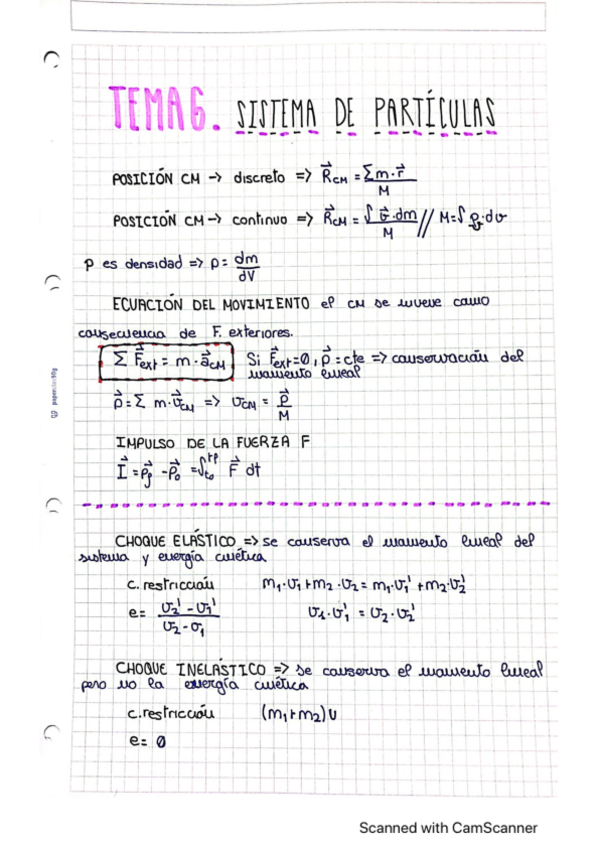 TEMA 6. SISTEMA DE PARTÍCULAS
POSICIÓN CM → discreto => R⃗CM = Σm·r⃗ / M
POSICIÓN CM → continuo => R⃗CM = ∫ v⃗·dm / M // M=∫ρ·dv
ρ es densidad => ρ = dm / dV
ECUACIÓN DEL MOVIMIENTO el CM se mueve como
consecuencia de F. exteriores.
Σ F⃗ext = m·a⃗CM Si F⃗ext=0, p⃗ = cte => conservación del
momento lineal
p⃗ = Σ m·v⃗CM => vCM = p⃗ / M
IMPULSO DE LA FUERZA F
I⃗ = p⃗f - p⃗o = ∫to tf F⃗ dt
CHOQUE ELÁSTICO => se conserva el momento lineal del
sistema y energía cinética
c. restricción m1·v1+m2·v2 = m1·v1' + m2·v2'
e = v2' - v1' / v2 - v1 v1·v1' = v2·v2'
CHOQUE INELÁSTICO => se conserva el momento lineal
pero no la energía cinética
c. restricción (m1+m2)v
e = 0
Scanned with CamScanner